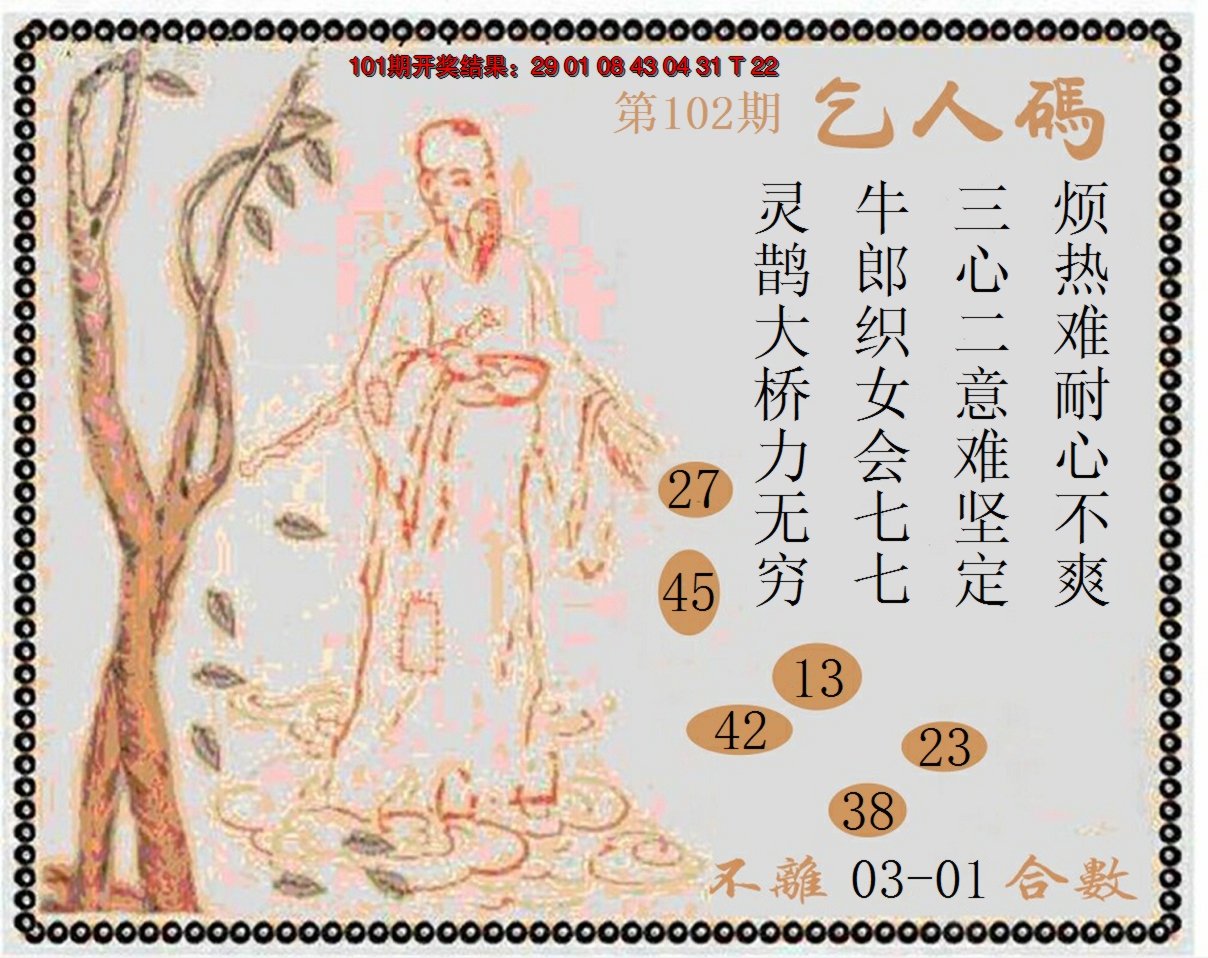 101期开奖结果：29 01 08 43 04 31 T 22
第102期 乞人碼
烦热难耐心不爽
三心二意难坚定
牛郎织女会七七
灵鹊大桥力无穷
27
45
13
42
23
38
不離 03-01 合數